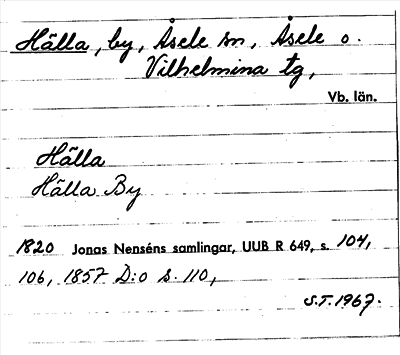 Hälla, by, Åsele sn, Åsele o.
Vilhelmina tg,
Vb. län.
Hälla
Hälla By
1820 Jonas Nenséns samlingar, UUB R 649, s. 104,
106, 1857 D:o s. 110,
S.T. 1967.